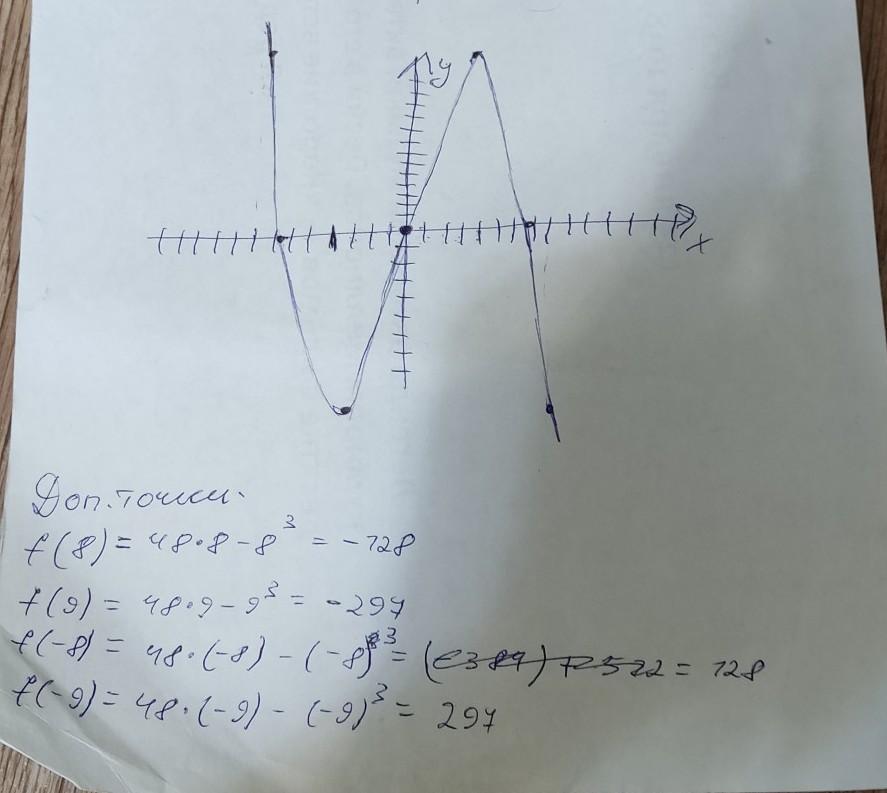 y
x
Доп. точки.
f(8) = 48·8 - 8³ = -128
f(9) = 48·9 - 9³ = -297
f(-8) = 48·(-8) - (-8)³ = = 128
f(-9) = 48·(-9) - (-9)³ = 297